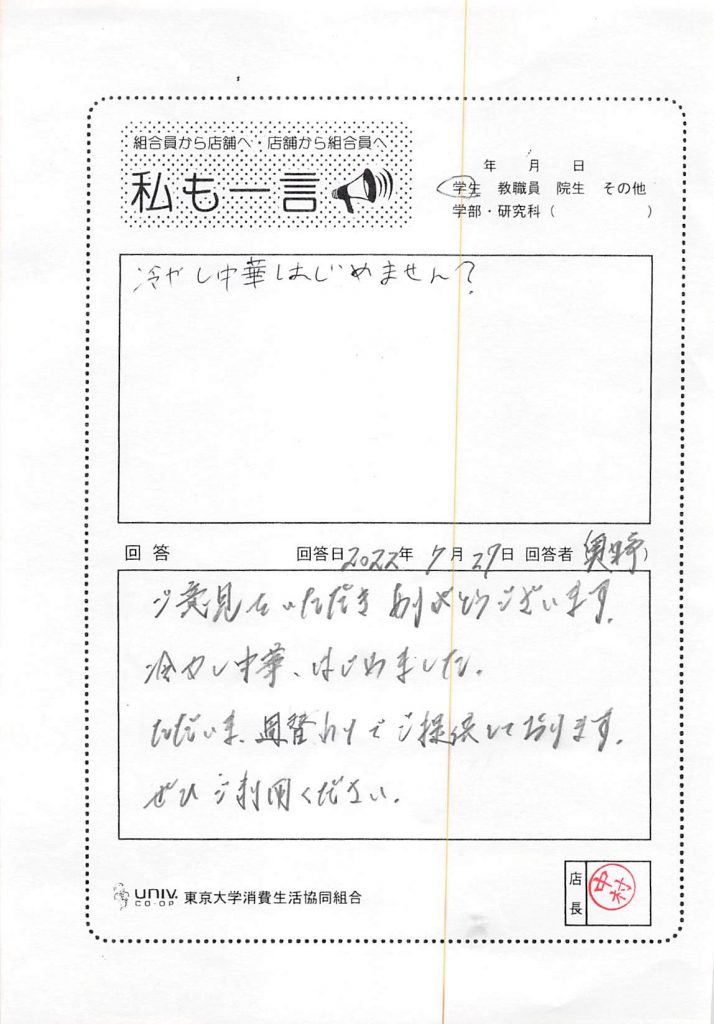 組合員から店舗へ・店舗から組合員へ
私も一言
年 月 日
学生 教職員 院生 その他
学部・研究科( )
冷やし中華はじめません?
回答 回答日2022年 7月29日 回答者 奥野)
ご意見をいただきありがとうございます。
冷やし中華、はじめました。
ただいま、週替わりでご提供しております。
ぜひご利用ください。
UNIV. CO-OP 東京大学消費生活協同組合
店長 中村